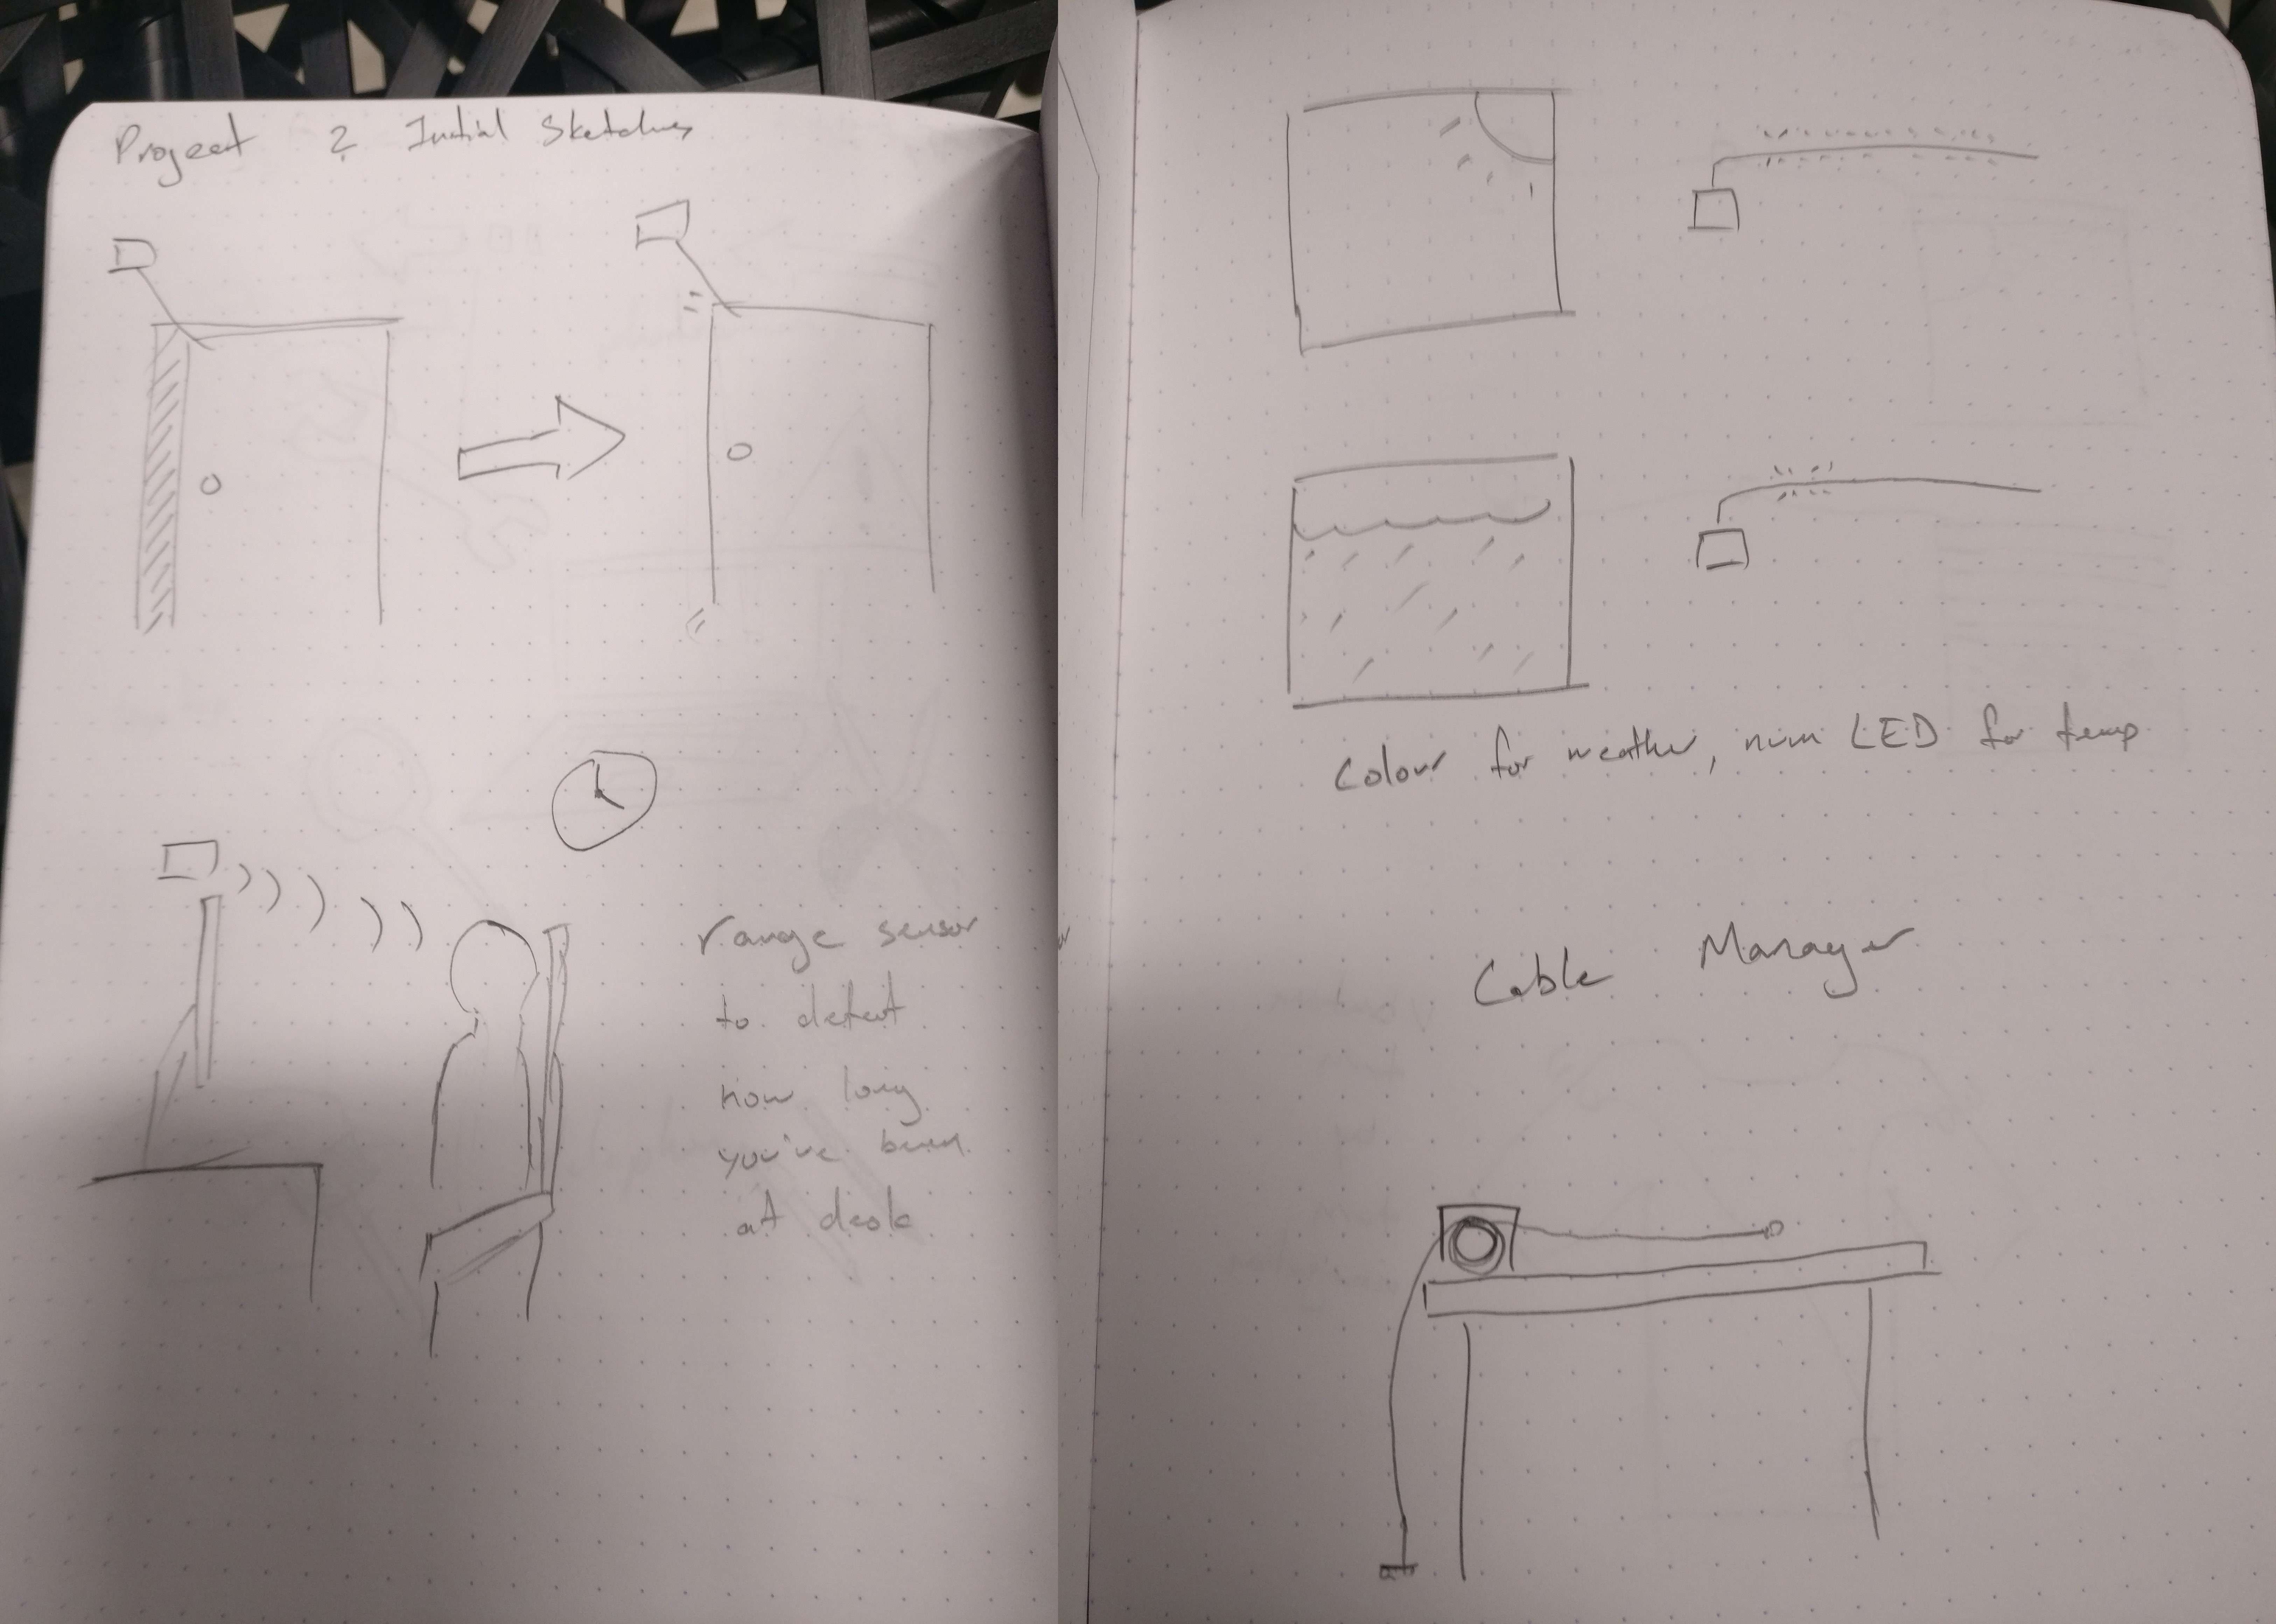 Project 2 Initial Sketches
range sensor
to detect
how long
you've been
at desk
Colour for weather, num LED for temp
Cable Manager